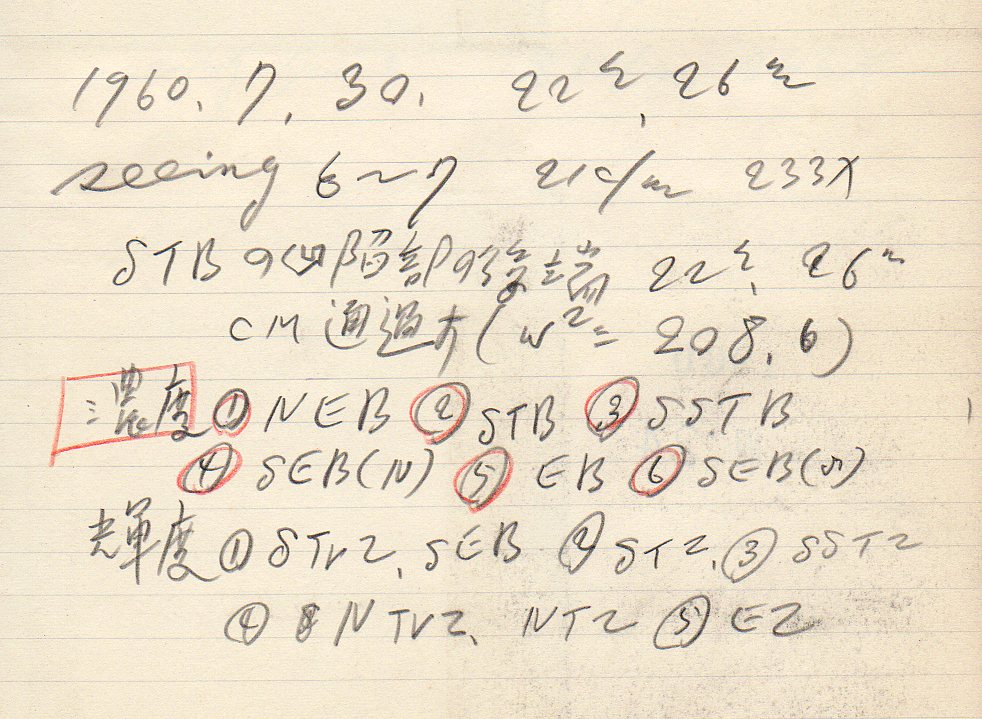 1960. 7. 30. 22h, 26m
seeing 6~7 21c/m 233X
STBの凹陥部の後端 22h, 26m
CM通過す(ω2= 208.6)
濃度 ① NEB ② STB ③ SSTB
④ SEB(N) ⑤ EB ⑥ SEB(S)
輝度 ① STrZ, SEB ② STZ, ③ SSTZ
④ NTrZ, NTZ ⑤ EZ